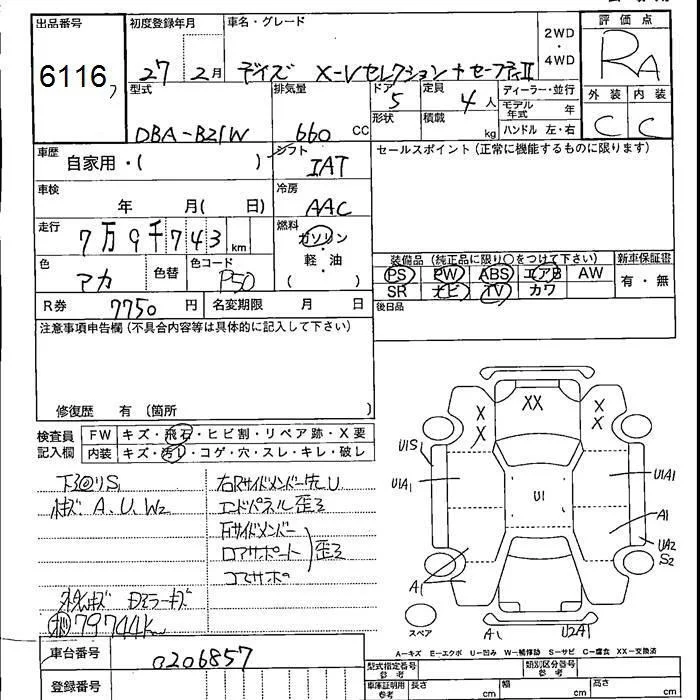 出品番号 初度登録年月 車名・グレード 2WD ・ 4WD 評価点
6116 27年 2月 デイズ X-Vセレクション+セーフティII RA
型式 排気量 ドア 5 定員 4人 ディーラー・並行 外装 内装
DBA-B21W 660 CC 形状 積載 kg モデル年式 年 C C
ハンドル 左・右
車歴 自家用・( ) シフト IAT セールスポイント(正常に機能するものに限ります)
車検 年 月( 日) 冷房 AAC
走行 7万9千743km 燃料 ガソリン
軽・油
( )
色 マカ 色替 色コード P50
装備品 (純正品に限り○をつけて下さい) 新車保証書
PS PW ABS エアB AW 有・無
SR ナビ TV カワ
R券 7750円 名変期限 月 日 後日品
注意事項申告欄(不具合内容等は具体的に記入して下さい)
修復歴 有 (箇所 )
検査員 FW キズ・飛石・ヒビ割・リペア跡・X要
記入欄 内装 キズ・汚レ・コゲ・穴・スレ・キレ・破レ
XX X X X X
U1S
U1A1 U1 U1A1
A1
UA2
S2
A1
スペア A1 U2A1
A.U.W2
右Rサイドメンバー先U
エンドパネル歪ミ
Fサイドメンバー
ロアサポート 歪ミ
コアサポ
79744km
A-キズ E-エクボ U-凹み W-補修跡 S-サビ C-腐食 XX-交換済
車台番号 0206857 型式指定番号 参考 類別区分番号 参考
登録番号 車庫証明用 参考 長さ cm 幅 cm 高さ cm